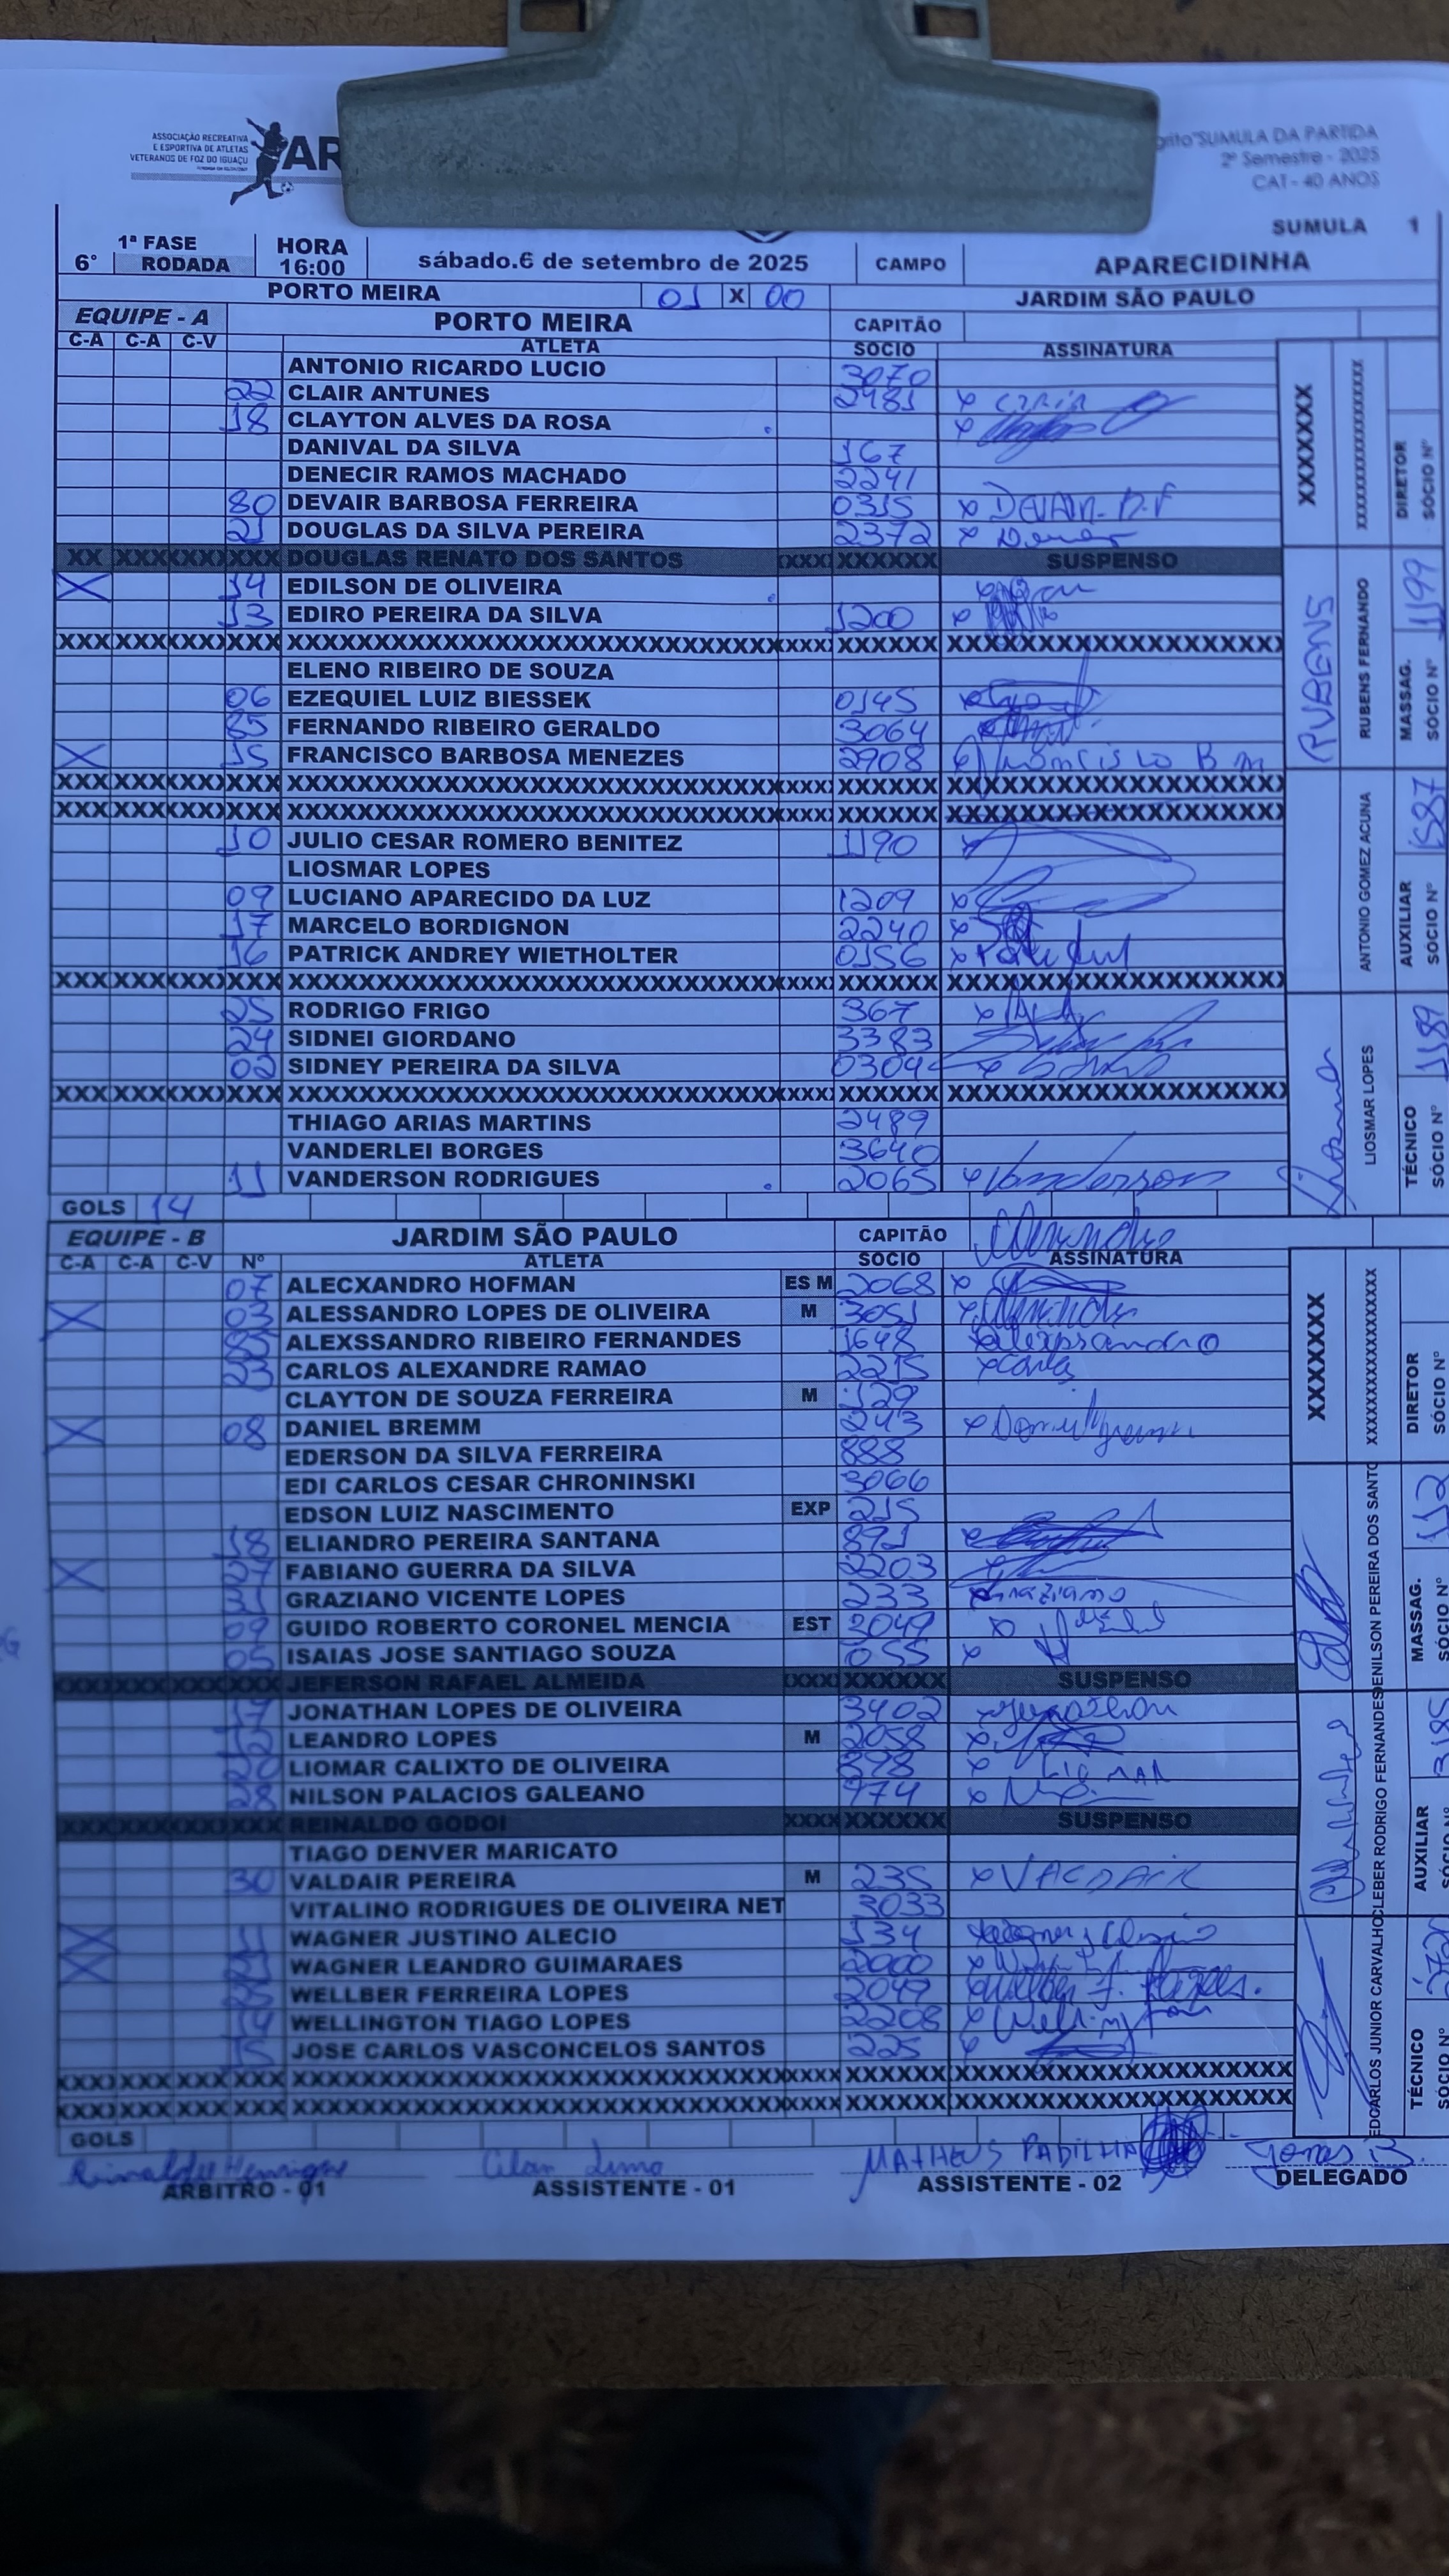 ASSOCIAÇÃO RECREATIVA
E ESPORTIVA DE ATLETAS
VETERANOS DE FOZ DO IGUAÇU
AR
grito"SUMULA DA PARTIDA
2º Semestre - 2025
CAT - 40 ANOS
SUMULA 1
6° 1ª FASE RODADA HORA 16:00 sábado.6 de setembro de 2025 CAMPO APARECIDINHA
PORTO MEIRA 01 X 00 JARDIM SÃO PAULO
EQUIPE - A PORTO MEIRA CAPITÃO
C-A C-A C-V ATLETA SOCIO ASSINATURA
ANTONIO RICARDO LUCIO 3070
22 CLAIR ANTUNES 2481
18 CLAYTON ALVES DA ROSA
DANIVAL DA SILVA 167
DENECIR RAMOS MACHADO 2241
80 DEVAIR BARBOSA FERREIRA 0315 x DEVAIR B.F
21 DOUGLAS DA SILVA PEREIRA 2372
XX XXXXXXXXXXX DOUGLAS RENATO DOS SANTOS XXX XXXXXX SUSPENSO
X 14 EDILSON DE OLIVEIRA
13 EDIRO PEREIRA DA SILVA 1200
ELENO RIBEIRO DE SOUZA
06 EZEQUIEL LUIZ BIESSEK 0145
85 FERNANDO RIBEIRO GERALDO 3064
X 15 FRANCISCO BARBOSA MENEZES 2908 Francisco B M
10 JULIO CESAR ROMERO BENITEZ 1190
LIOSMAR LOPES
09 LUCIANO APARECIDO DA LUZ 1209
17 MARCELO BORDIGNON 2240
16 PATRICK ANDREY WIETHOLTER 0156
25 RODRIGO FRIGO 367
24 SIDNEI GIORDANO 3383
02 SIDNEY PEREIRA DA SILVA 0304
THIAGO ARIAS MARTINS 2489
VANDERLEI BORGES 3640
11 VANDERSON RODRIGUES 2065 x Vanderson
GOLS 14
XXXXXXX XXXXXXXXXXXXXXXXXX DIRETOR SÓCIO Nº
RUBENS RUBENS FERNANDO MASSAG. SÓCIO Nº 1199
ANTONIO GOMEZ ACUNA AUXILIAR SÓCIO Nº 1587
LIOSMAR LOPES TÉCNICO SÓCIO Nº 1189
EQUIPE - B JARDIM SÃO PAULO CAPITÃO
C-A C-A C-V Nº ATLETA SOCIO ASSINATURA
07 ALECXANDRO HOFMAN ES M 2068
X 03 ALESSANDRO LOPES DE OLIVEIRA M 3051
ALEXSSANDRO RIBEIRO FERNANDES 1648 x alexssandro
23 CARLOS ALEXANDRE RAMAO 2215 x Carlos
CLAYTON DE SOUZA FERREIRA M 129
X 08 DANIEL BREMM 243
EDERSON DA SILVA FERREIRA 888
EDI CARLOS CESAR CHRONINSKI 3066
EDSON LUIZ NASCIMENTO EXP 215
18 ELIANDRO PEREIRA SANTANA 891
X 27 FABIANO GUERRA DA SILVA 2203
31 GRAZIANO VICENTE LOPES 233 Graziano
09 GUIDO ROBERTO CORONEL MENCIA EST 2049
05 ISAIAS JOSE SANTIAGO SOUZA 055
JEFERSON RAFAEL ALMEIDA XXXX XXXXXX SUSPENSO
17 JONATHAN LOPES DE OLIVEIRA 3402
LEANDRO LOPES M 2058
20 LIOMAR CALIXTO DE OLIVEIRA 898 x LIOMAR
28 NILSON PALACIOS GALEANO 974
REINALDO GODOI XXXX XXXXXX SUSPENSO
TIAGO DENVER MARICATO
30 VALDAIR PEREIRA M 235 x VALDAIR
VITALINO RODRIGUES DE OLIVEIRA NET 3033
X 11 WAGNER JUSTINO ALECIO 134
X 21 WAGNER LEANDRO GUIMARAES 2900
25 WELLBER FERREIRA LOPES 2047
19 WELLINGTON TIAGO LOPES 2208
15 JOSE CARLOS VASCONCELOS SANTOS 225
GOLS
XXXXXXX XXXXXXXXXXXXXXXXXX DIRETOR SÓCIO Nº
ENILSON PEREIRA DOS SANTO MASSAG. SÓCIO Nº 112
CLEBER RODRIGO FERNANDES AUXILIAR SÓCIO Nº 3185
EDCARLOS JUNIOR CARVALHO TÉCNICO SÓCIO Nº
Reinaldo Henrique MATHEUS PADILHA Jonas B.
ARBITRO - 01 ASSISTENTE - 01 ASSISTENTE - 02 DELEGADO